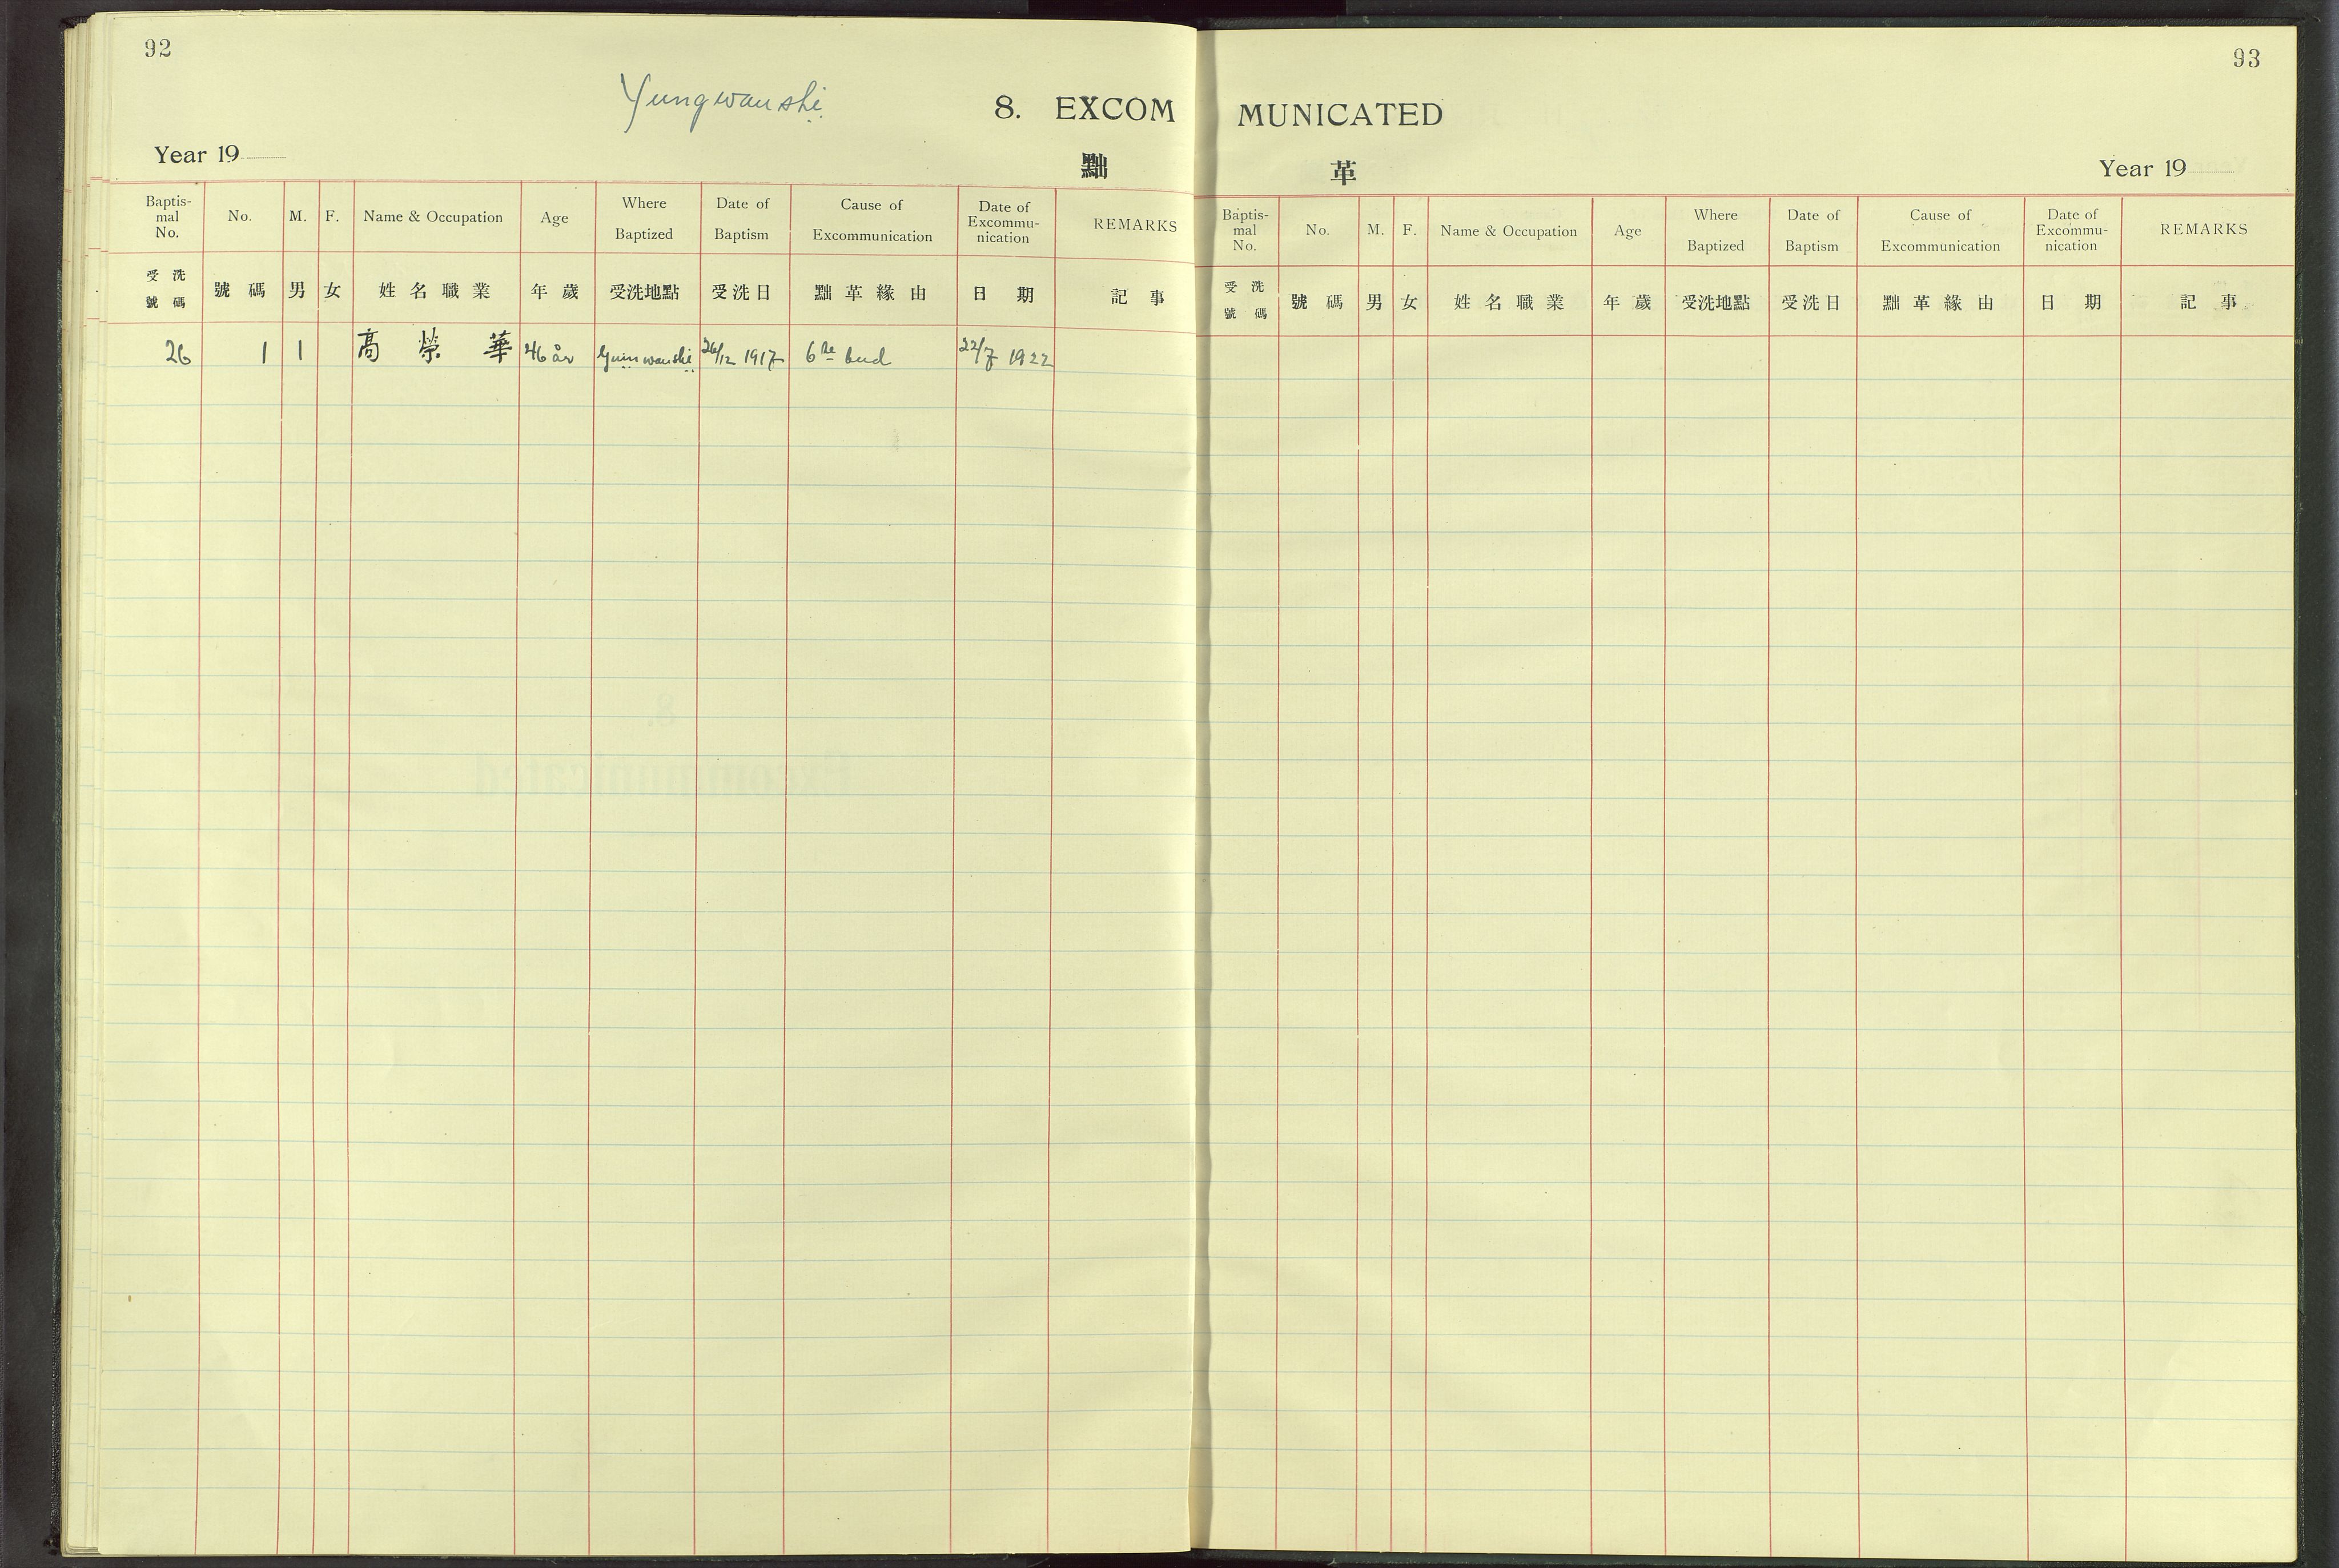 92
Yungwanshï
8. EXCOM
Year 19
黜
Baptis-mal No. No. M. F. Name & Occupation Age Where Baptized Date of Baptism Cause of Excommunication Date of Excommu-nication REMARKS
受洗號碼 號碼 男 女 姓名職業 年歲 受洗地點 受洗日 黜革緣由 日期 記事
26 1 1 高榮華 46 år 26/12 1917 6te bud 22/7 1922
93
MUNICATED
革
Year 19
Baptis-mal No. No. M. F. Name & Occupation Age Where Baptized Date of Baptism Cause of Excommunication Date of Excommu-nication REMARKS
受洗號碼 號碼 男 女 姓名職業 年歲 受洗地點 受洗日 黜革緣由 日期 記事